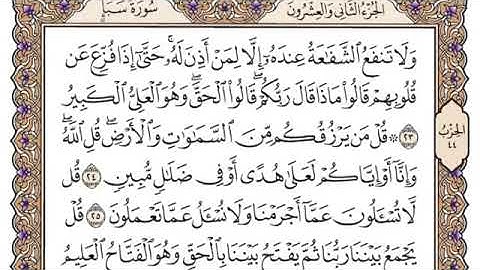 الجزء الثاني والعشرون
سورة سبإ
وَلَا تَنفَعُ ٱلشَّفَٰعَةُ عِندَهُۥٓ إِلَّا لِمَنْ أَذِنَ لَهُۥۚ حَتَّىٰٓ إِذَا فُزِّعَ عَن
قُلُوبِهِمْ قَالُوا۟ مَاذَا قَالَ رَبُّكُمْۖ قَالُوا۟ ٱلْحَقَّۖ وَهُوَ ٱلْعَلِىُّ ٱلْكَبِيرُ
٢٣ ۞ قُلْ مَن يَرْزُقُكُم مِّنَ ٱلسَّمَٰوَٰتِ وَٱلْأَرْضِۖ قُلِ ٱللَّهُۖ
وَإِنَّآ أَوْ إِيَّاكُمْ لَعَلَىٰ هُدًى أَوْ فِى ضَلَٰلٍ مُّبِينٍ ٢٤ قُل
لَّا تُسْـَٔلُونَ عَمَّآ أَجْرَمْنَا وَلَا نُسْـَٔلُ عَمَّا تَعْمَلُونَ ٢٥ قُلْ
يَجْمَعُ بَيْنَنَا رَبُّنَا ثُمَّ يَفْتَحُ بَيْنَنَا بِٱلْحَقِّ وَهُوَ ٱلْفَتَّاحُ ٱلْعَلِيمُ
الحزب
٤٤